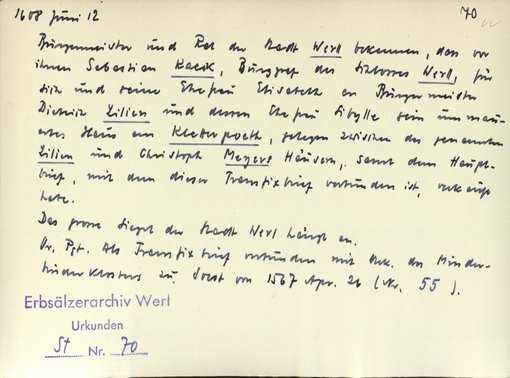 1608 Juni 12
70
Bürgermeister und Rat der Stadt Werl bekennen, dass vor
ihnen Sebastian Kacik, Burggraf des Schlosses Werl, für
sich und seine Ehefrau Elisabeth an Bürgermeister
Dietrich Lilien und dessen Ehefrau Sibylle sein
Haus am Klosterpoeth, gelegen zwischen des genannten
Lilien und Christoph Meyers Häusern, samt dem Haupt-
brief, mit dem dieser Transfixbrief verbunden ist, verkauft
habe.
Das grosse Siegel der Stadt Werl hängt an.
Or. Pgt. Als Transfixbrief verbunden mit Urk. des Minder-
brüderklosters zu Soest von 1567 Apr. 26 (Nr. 55).
Erbsälzerarchiv Werl
Urkunden
St Nr. 70